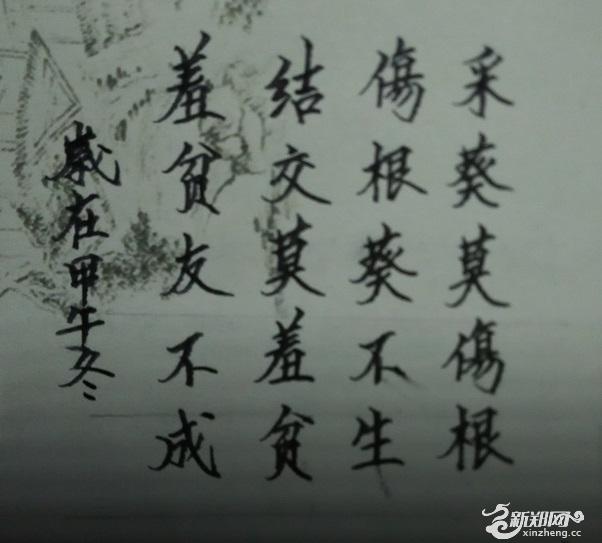 采葵莫傷根
傷根葵不生
结交莫羞贫
羞贫友不成
歲在甲午冬
新郑网
xinzheng.cc